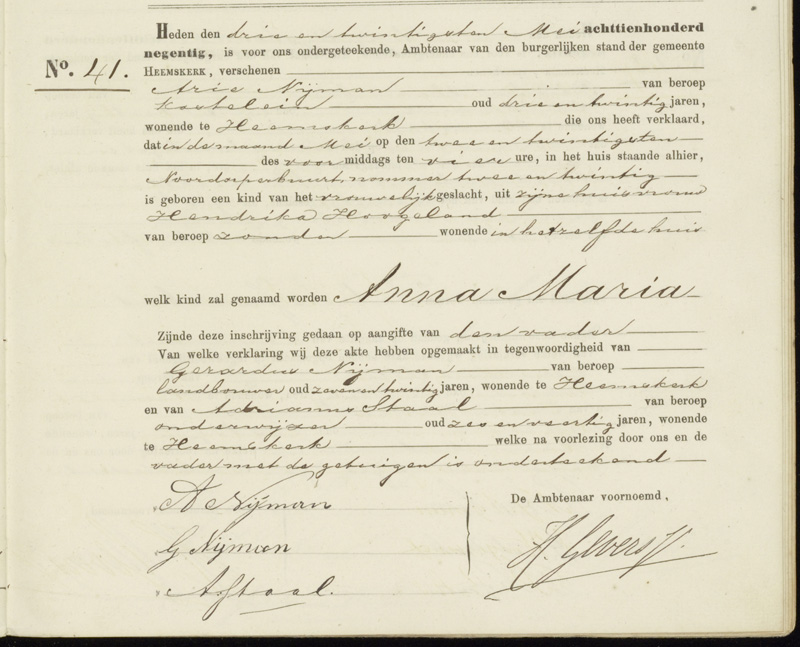 Heden den drie en twintigsten Mei achttienhonderd
negentig, is voor ons ondergeteekende, Ambtenaar van den burgerlijken stand der gemeente
No. 41.
Heemskerk, verschenen
Arie Nijman van beroep
kastelein oud drie en twintig jaren,
wonende te Heemskerk die ons heeft verklaard,
dat in de maand Mei op den twee en twintigsten
des voormiddags ten vier ure, in het huis staande alhier,
Noordorperbuurt, nommer twee en twintig
is geboren een kind van het vrouwelijk geslacht, uit zijne huisvrouw
Hendrika Hoogeland
van beroep zonder wonende in hetzelfde huis
welk kind zal genaamd worden Anna Maria
Zijnde deze inschrijving gedaan op aangifte van den vader
Van welke verklaring wij deze akte hebben opgemaakt in tegenwoordigheid van
Gerardus Nijman van beroep
landbouwer oud zeven en twintig jaren, wonende te Heemskerk
en van Adrianus Staal van beroep
onderwijzer oud zes en veertig jaren, wonende
te Heemskerk welke na voorlezing door ons en de
vader met de getuigen is onderteekend
A Nijman
De Ambtenaar voornoemd,
G Nijman
H. Gevers
A. Staal.